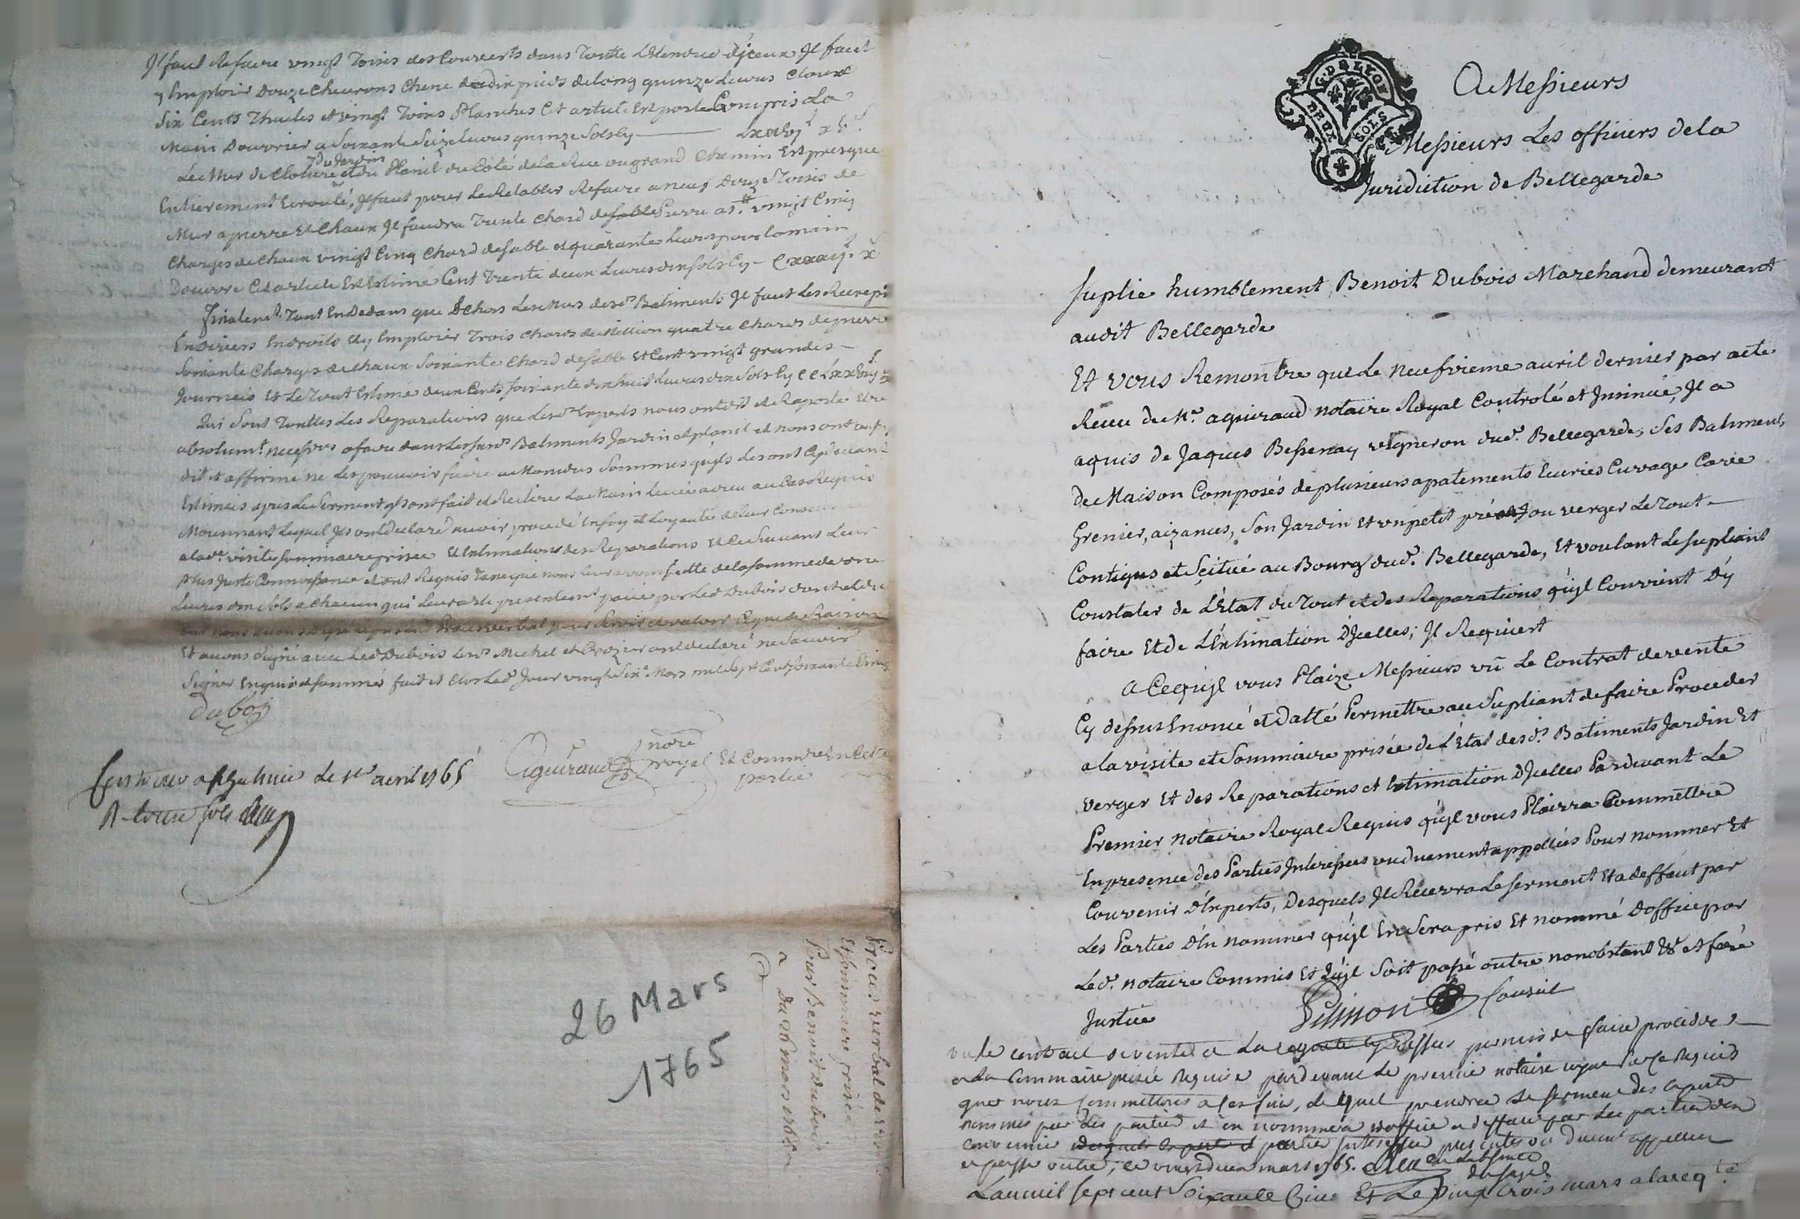 Il faut Refaire vingt Toises des Couverts dans toutte L'Etendue d'Jceux Il faut
y Employer Douze Chevrons Chene de dix pieds de long quinze Livres Cloux
Six Cents Thuiles et vingt Toises Planches Cet article Est porté Compris La
Main D'ouvrier a Soixante Seize Livres quinze Sols Cy
Le Mur de Cloture du Jardin et du Planil du Coté de la Rue ou grand Chemin Est presque
Entierement Ecroulé, Il faut pour Le Retablir Refaire a neuf Douze Toises de
Mur a pierre Et Chaux Il faudra Trente Chard de Pierre vingt Cinq
Charges de Chaux vingt Cinq Chard de Sable et quarante Livres pour la main
D'ouvre Cet article Est Estimé Cent Trente deux Livres dix Sols Cy
Finalemt. Tant En Dedans que Dehors Les Murs desds. Batiments Il faut Les
En divers Endroits Et y Employer Trois Chards quatre Chards de pierre
Soixante Charges de Chaux Soixante Chard de Sable Et Cent vingt grandes
Journées Et Le Tout Estimé deux Cents Soixante dix huit Livres dix Sols Cy
Qui Sont Touttes Les Reparations que Lesds. Experts nous ont dit et Raporté Etre
absolumt. necessres a faire dans Batiments Jardin et planil et nous ont
dit et affirmé ne Les pouvoir faire a Moindres Sommes qu'ils Les ont Cy devant
Estimées apres Le Serment qu'ils ont fait et Reitéré La Main Levée a dieu au Cas Requis
Moyennant Lequel Ils ont declaré avoir procédé En foy et Loyauté de leur Conscience
a lade. visite Sommaire prisée et Estimations des Reparations Et Ce Suivant Leur
plus Juste Connoissance et ont Requis Taxe que nous leur avons faitte de la somme de
Livres dix Sols a Chacun qui Leur a été presentement payé par Led. Dubois dont et de
tout nous avons dressé le present Procès verbal pour Servir et valoir Ce que de Raison
Et avons Signé avec Led. Dubois Lesds. Michel et Crozier ont declaré ne Savoir
Signer Enquis et Sommés fait et Clos Led. Jour vingt Six Mars mil Sept Cent Soixante Cinq
Duboy
Aguiraud
nore
royal Et Commre En Cette
partie
le 1er avril 1765
R
26 Mars
1765
Procès verbal de
Et Sommaire prisée
Pour Benoit dubois
Du 26 mars 1765
G. D. LYON
DEUX SOLS
A Messieurs
Messieurs Les officiers de la
Juridiction de Bellegarde
Suplie humblement Benoit Dubois Marchand demeurant
audit Bellegarde
Et vous Remontre que Le neufvieme avril dernier par acte
Receu de Me. aguiraud notaire Royal Controlé et Insinué, Il a
aquis de Jaques Bessenay vigneron dud. Bellegarde, Ses Batiments
de Maison Composés de plusieurs apatements Ecuries Cuvage Cave
Grenier, aizances, Son Jardin Et un petit pré ou verger Le Tout
Contigus et Scitué au Bourg dud. Bellegarde, Et voulant Le Supliant
Constater de L'Etat du Tout et des Reparations qu'il Convient D'y
faire Et de L'Estimation D'Jcelles; Il Requiert
A Ce qu'il vous Plaize Messieurs vû Le Contrat de vente
Cy dessus Enoncé et Datté Permettre au Supliant de faire Proceder
a la visite et Sommaire prisée de L'Etat desds. Batiments Jardin Et
verger Et des Reparations et Estimation D'Jcelles Pardevant Le
Premier notaire Royal Requis qu'il vous Plairra Commettre
En presence des Parties Interessées ou duement appellées Pour nommer Et
Convenir D'Experts, Desquels Il Recevra Le Serment Et a deffaut par
Les Parties D'En nommer qu'il En Sera pris Et nommé D'office par
Led. notaire Commis Et qu'il Soit passé outre nonobstant &c et feré
Justice
conseil
vu le contrat de vente et La requete cy dessus permis de faire proceder
a La Sommaire prisée Requise pardevant le premier notaire royal Sur ce Requis
que nous Commettons a ces fins, lequel prendra Le Serment des experts
nommés par les parties et en nommera d'office a deffaut par Les parties d'en
convenir parties presentes ou duemt. appellées
et passé outre, ce vingt deux mars 1765.
L'an mil Sept cent Soixante Cinq Et Le vingt trois mars a la reqte.